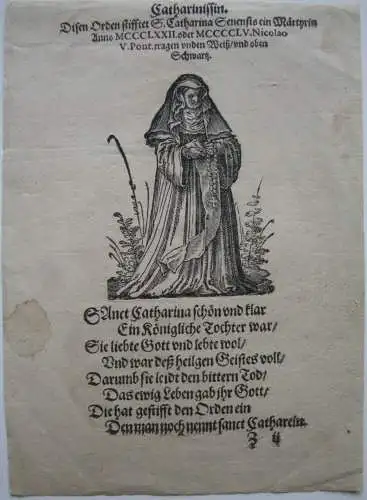 Catharinissin.
Disen Orden stifftet S. Catharina Senensis ein Märtyrin
Anno MCCCLXXII. oder MCCCCLV. Nicolao
V. Pont. tragen vnden Weiß/vnd oben
Schwartz.
SAnct Catharina schön vnd klar
Ein Königliche Tochter war/
Sie liebte Gott vnd lebte wol/
Vnd war deß heilgen Geistes voll/
Darumb sie leidt den bittern Tod/
Das ewig Leben gab jhr Gott/
Die hat gestifft den Orden ein
Den man noch nennt sanct Catharein.
Z ij